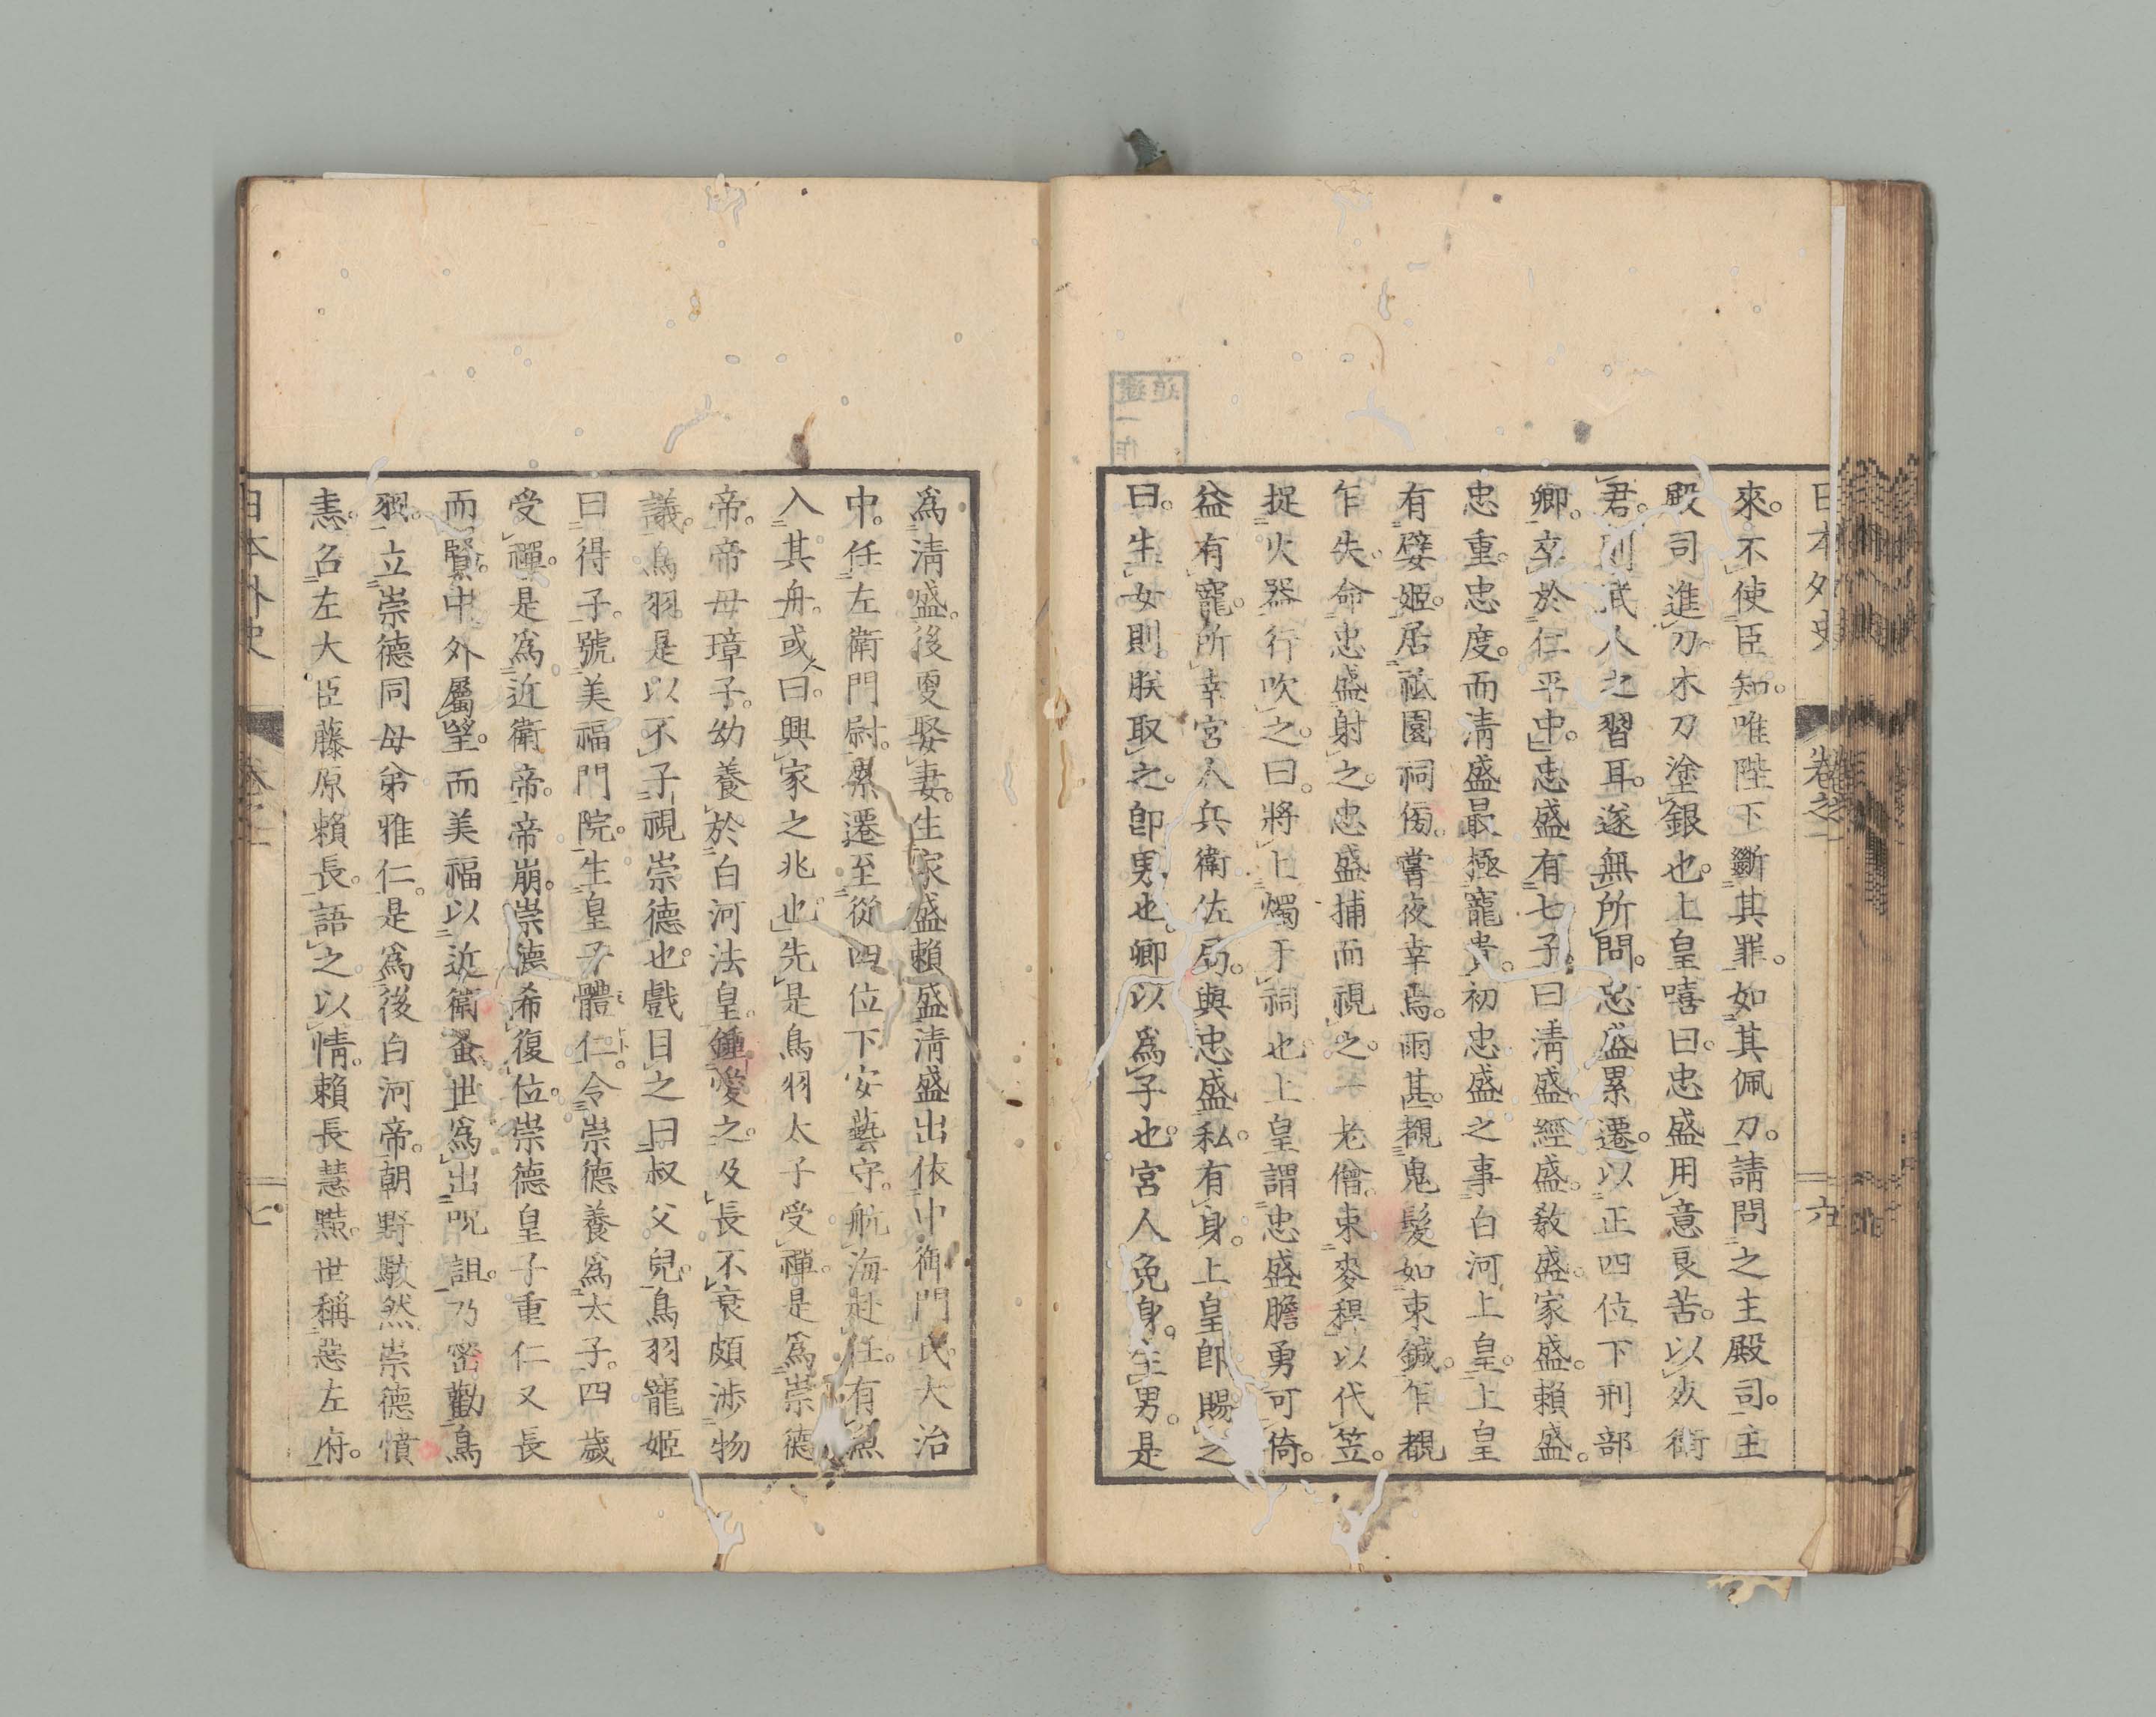 日本外史 卷之一 六
來。不使臣知。唯陛下斷其罪。如其佩刀。請問之主殿司。主
殿司進刀。木刀塗銀也。上皇嘻曰。忠盛用意良苦。以夾衛
君。則武人之習耳。遂無所問。忠盛累遷。以正四位下刑部
卿。卒於仁平中。忠盛有七子。曰清盛。經盛。敎盛。家盛。賴盛。
忠重。忠度。而清盛最極寵貴。初忠盛之事白河上皇。上皇
有嬖姬。居祗園祠傍。嘗夜幸焉。雨甚。覩鬼髮如束鍼。乍覩
乍失。命忠盛射之。忠盛捕而視之。一老僧。束麥稈以代笠。
捉火器行吹之。曰。將上燭于祠也。上皇謂忠盛膽勇可倚。
益有寵。所幸宮人兵衛佐局。與忠盛私。有身。上皇卽賜之
曰。生女則朕取之。卽男也。卿以爲子也。宮人免身。生男。是
爲清盛。後更娶妻。生家盛賴盛。清盛出依中御門氏。大治
中。任左衛門尉。累遷至從四位下安藝守。航海赴任。有魚
入其舟。或曰。興家之兆也。先是鳥羽太子受禪。是爲崇德
帝。帝母璋子。幼養於白河法皇。鍾愛之。及長不衰。頗涉物
議。鳥羽是以不子視崇德也。戲目之曰叔父兒。鳥羽寵姬
曰得子。號美福門院。生皇子體仁。令崇德養爲太子。四歲
受禪。是爲近衛帝。帝崩。崇德希復位。崇德皇子重仁又長
而賢。中外屬望。而美福以近衛蚤世爲出呪詛。乃密勸鳥
羽。立崇德同母弟雅仁。是爲後白河帝。朝野駭然。崇德憤
恚。召左大臣藤原賴長。語之以情。賴長慧黠。世稱惡左府。
日本外史 卷之一 七